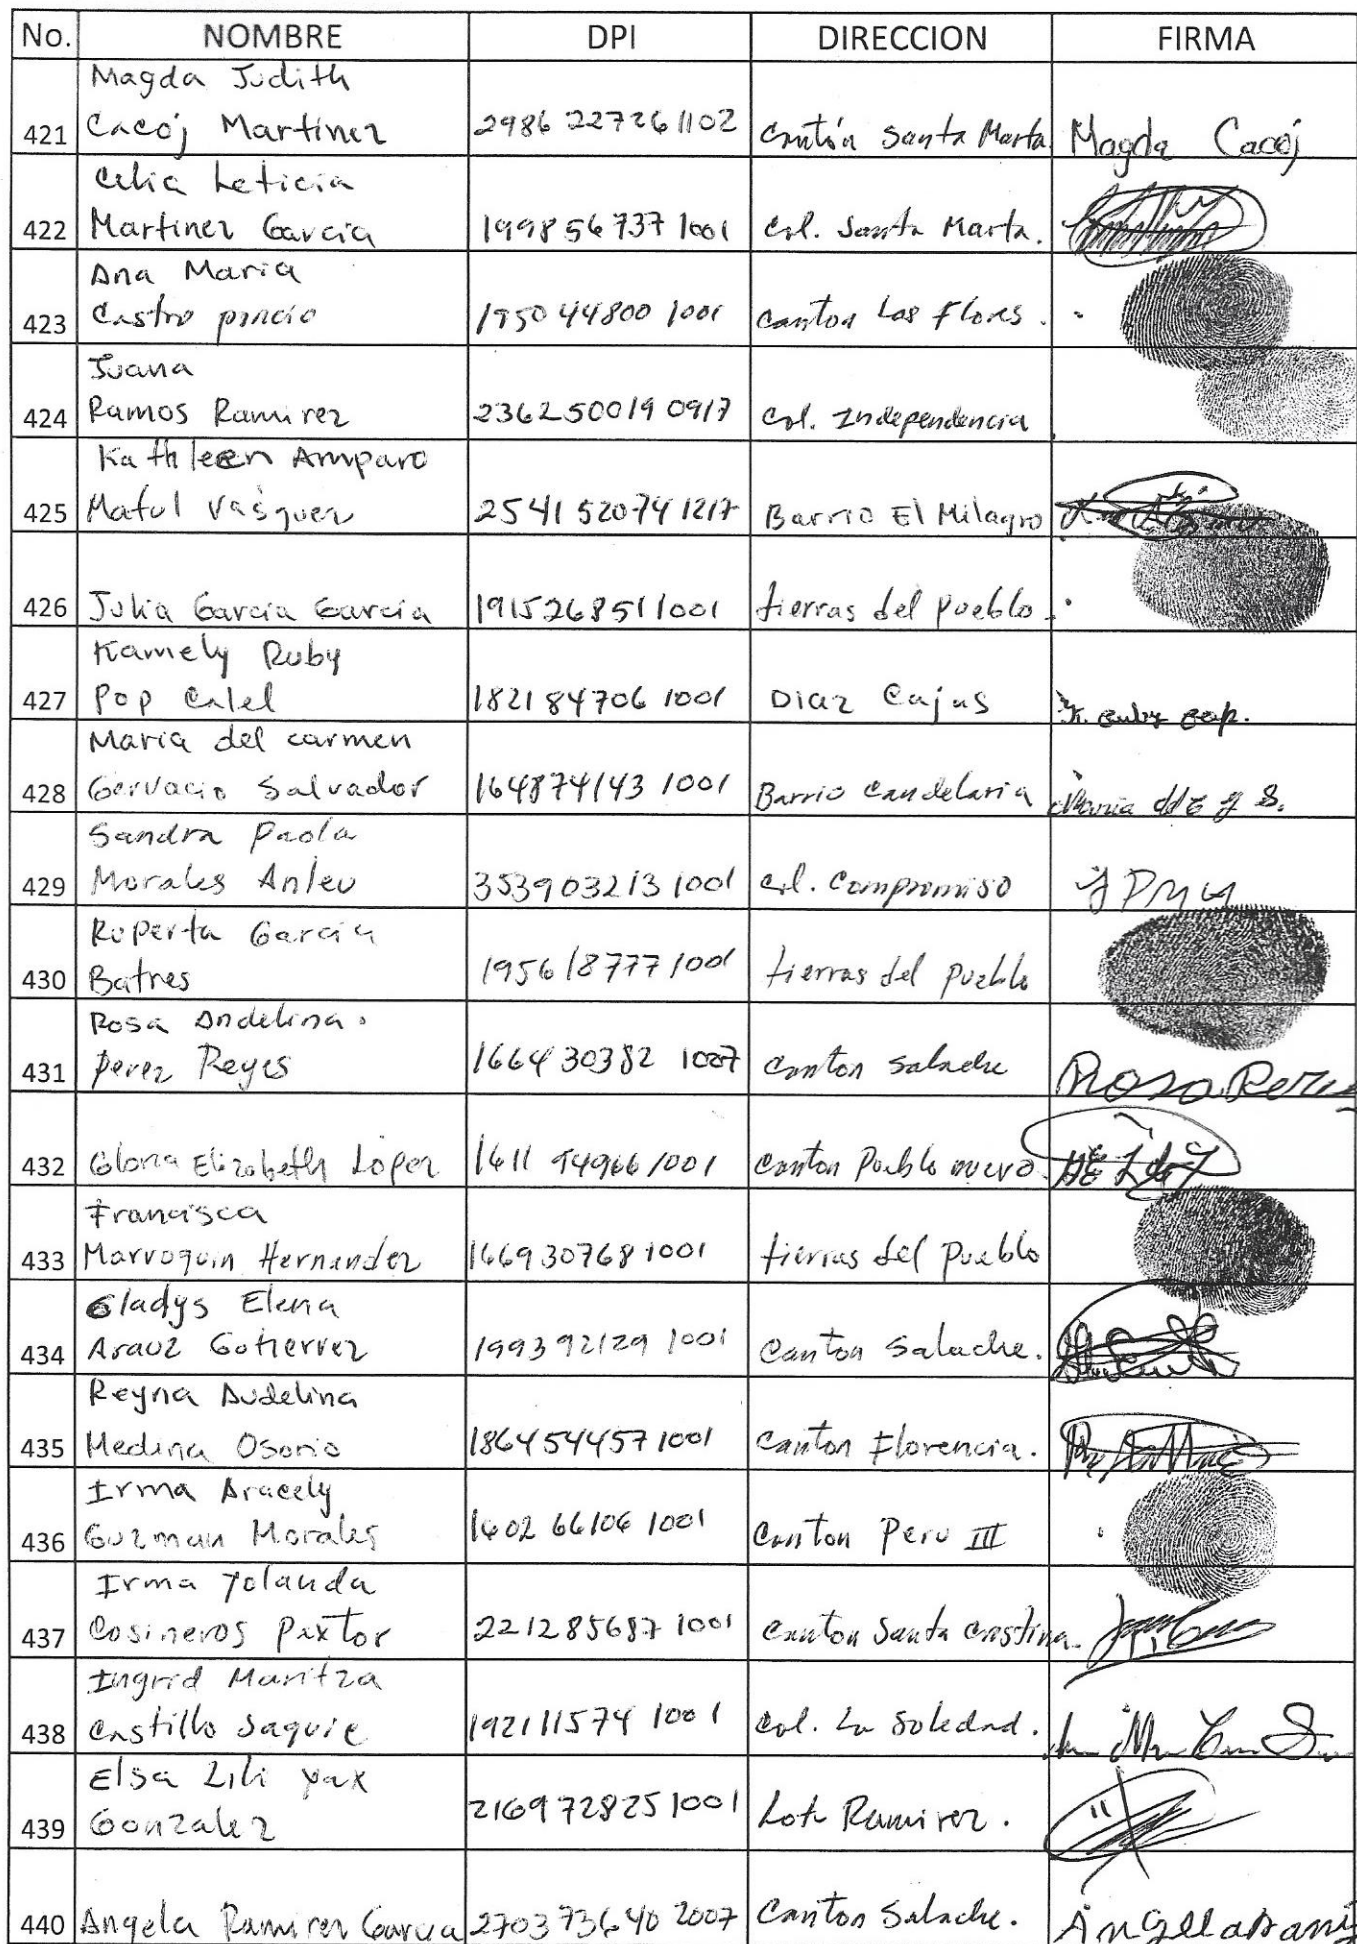 No. NOMBRE DPI DIRECCION FIRMA
Magda Judith
421 Cacoj Martinez 2986 22726 1102 Cantón Santa Marta. Magda Cacoj
Celia Leticia
422 Martinez Garcia 1998 56737 1001 Col. Santa Marta.
Ana Maria
423 Castro 1950 44800 1001 Canton Las Flores.
Juana
424 Ramos Ramirez 2362 50019 0917 Col. Independencia
Kathleen Amparo
425 Matul Vasquez 2541 52074 1217 Barrio El Milagro
426 Julia Garcia Garcia 1915268511001 tierras del pueblo.
Kamely Ruby
427 Pop Calel 1821 84706 1001 Diaz Cajas
Maria del carmen
428 Gervacio Salvador 164874143 1001 Barrio Candelaria Maria del C G S.
Sandra Paola
429 Morales Anleu 353903213 1001 Col. Compromiso
Ruperta Garcia
430 Batres 195618777 1001 tierras del pueblo
Rosa Andelina.
431 Perez Reyes 1664 30382 1007 Canton Salache Rosa Perez
432 Gloria Elizabeth Lopez 1611 94966 1001 Canton Pueblo nuevo
Francisca
433 Marroquin Hernandez 1669307681001 tierras del Pueblo
Gladys Elena
434 Arauz Gutierrez 199392129 1001 Canton Salache.
Reyna Audelina
435 Medina Osorio 1864544571001 Canton Florencia.
Irma Aracely
436 Guzman Morales 1602 66106 1001 Canton Peru III
Irma Yolanda
437 Cosineros Paxtor 221285687 1001 Canton Santa Cristina.
Ingrid Maritza
438 Castillo Saquic 192111574 1001 Col. La Soledad.
Elsa Lili Yax
439 Gonzalez 2169728251001 Lot. Ramirez.
440 Angela Ramirez Garcia 2703 73640 2007 Canton Salache.